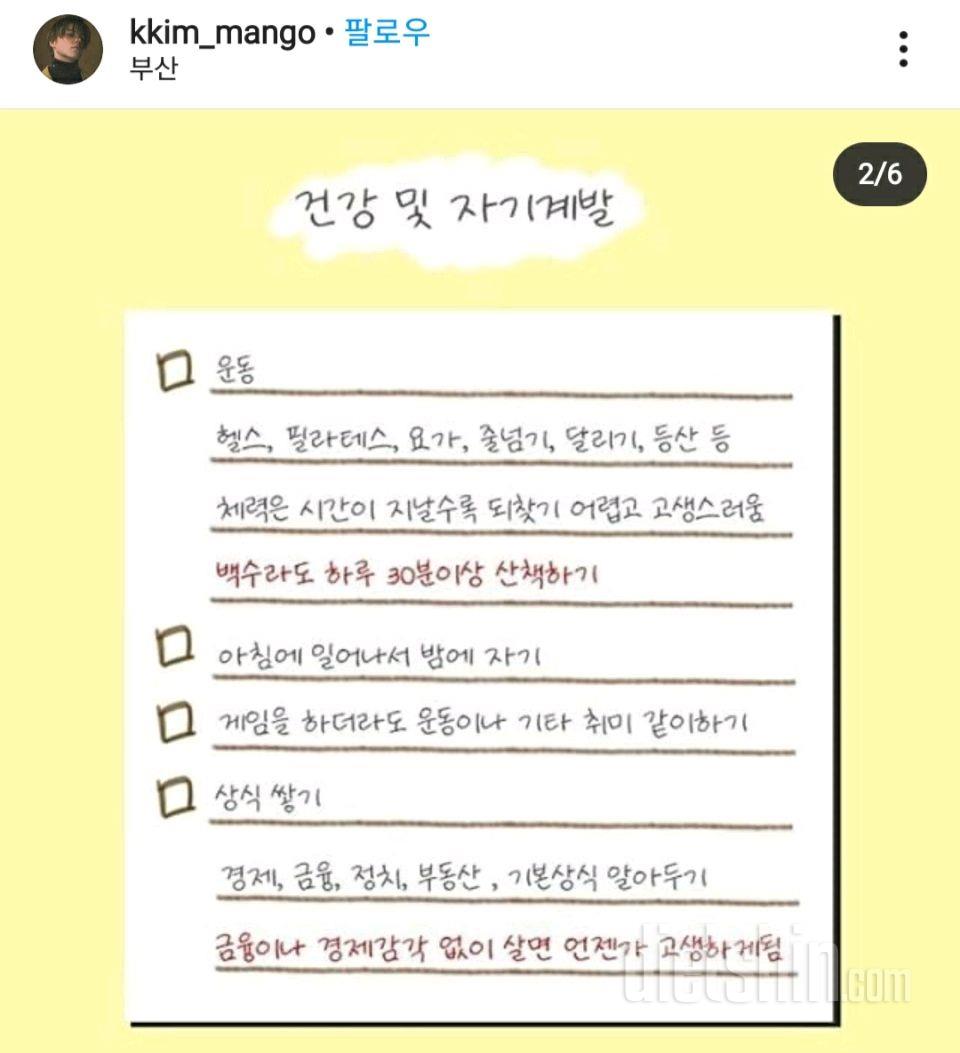 kkim_mango • 팔로우
부산
2/6
건강 및 자기계발
운동
헬스, 필라테스, 요가, 줄넘기, 달리기, 등산 등
체력은 시간이 지날수록 되찾기 어렵고 고생스러움
백수라도 하루 30분이상 산책하기
아침에 일어나서 밤에 자기
게임을 하더라도 운동이나 기타 취미 같이하기
상식 쌓기
경제, 금융, 정치, 부동산, 기본상식 알아두기
금융이나 경제감각 없이 살면 언젠가 고생하게됨
dietshin.com